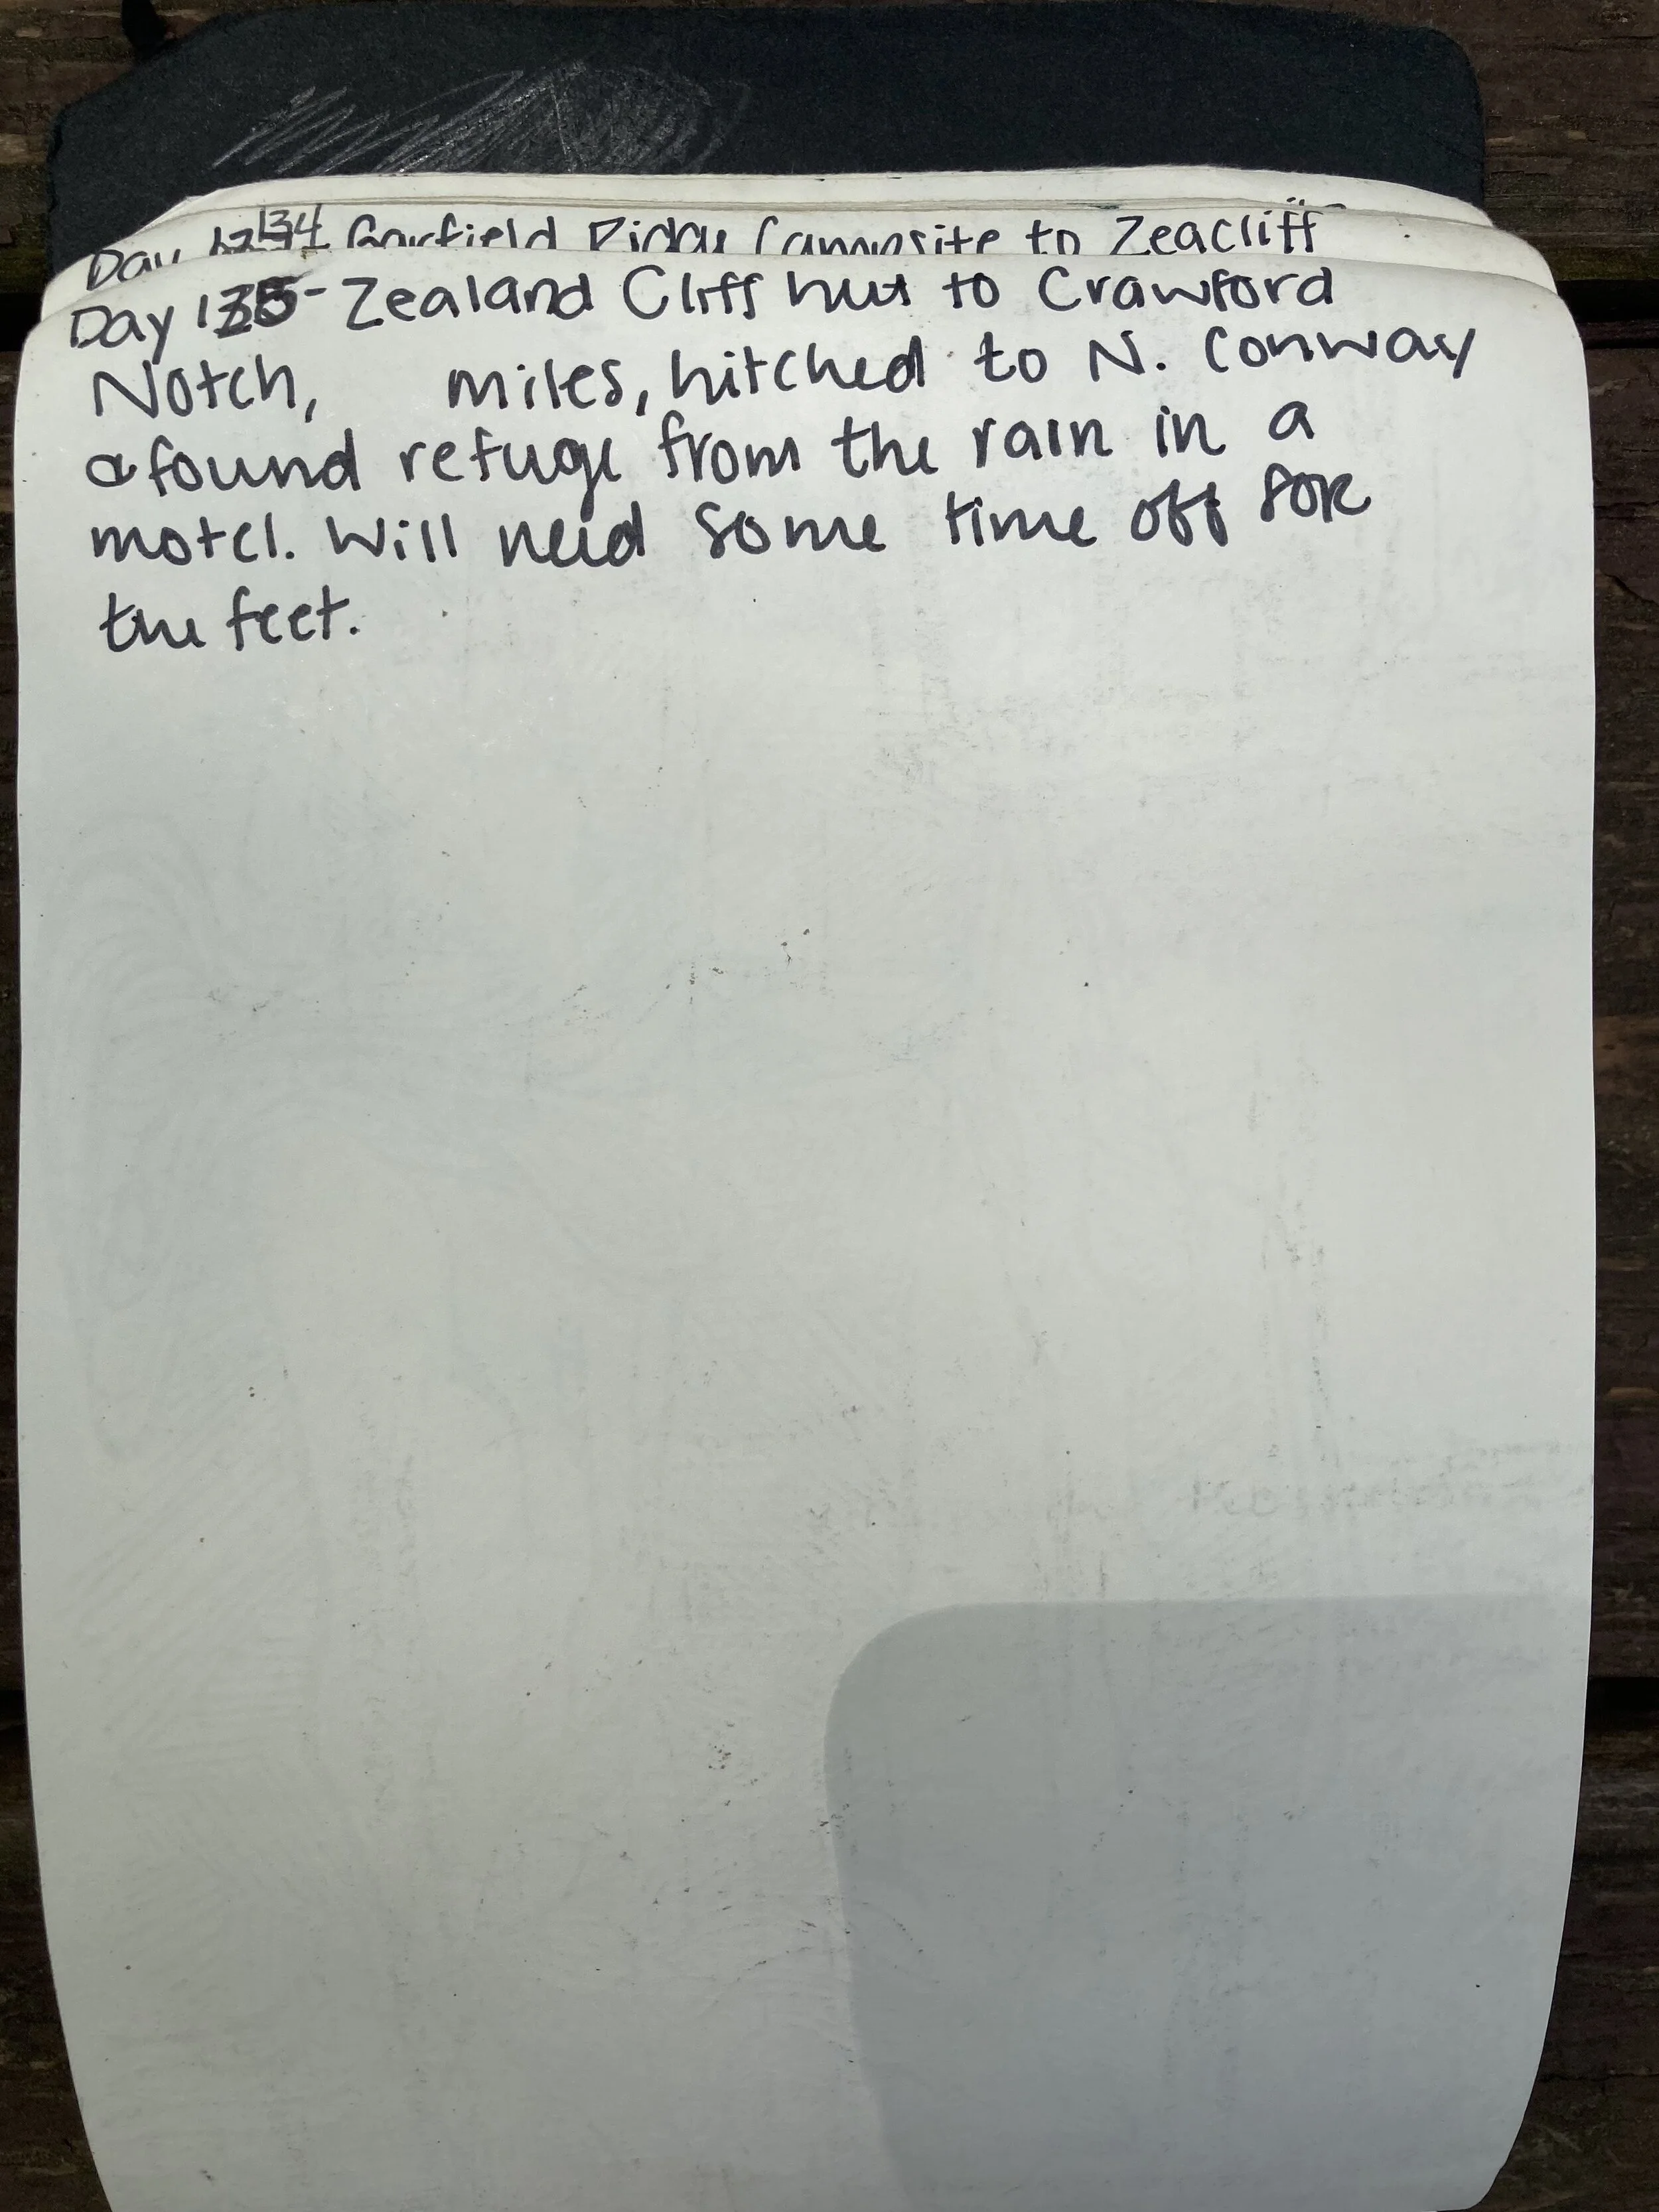 Day 134 Garfield Ridge Campsite to Zeacliff
Day 135- Zealand Cliff hut to Crawford
Notch, miles, hitched to N. Conway
& found refuge from the rain in a
motel. Will need some time off for
the feet.